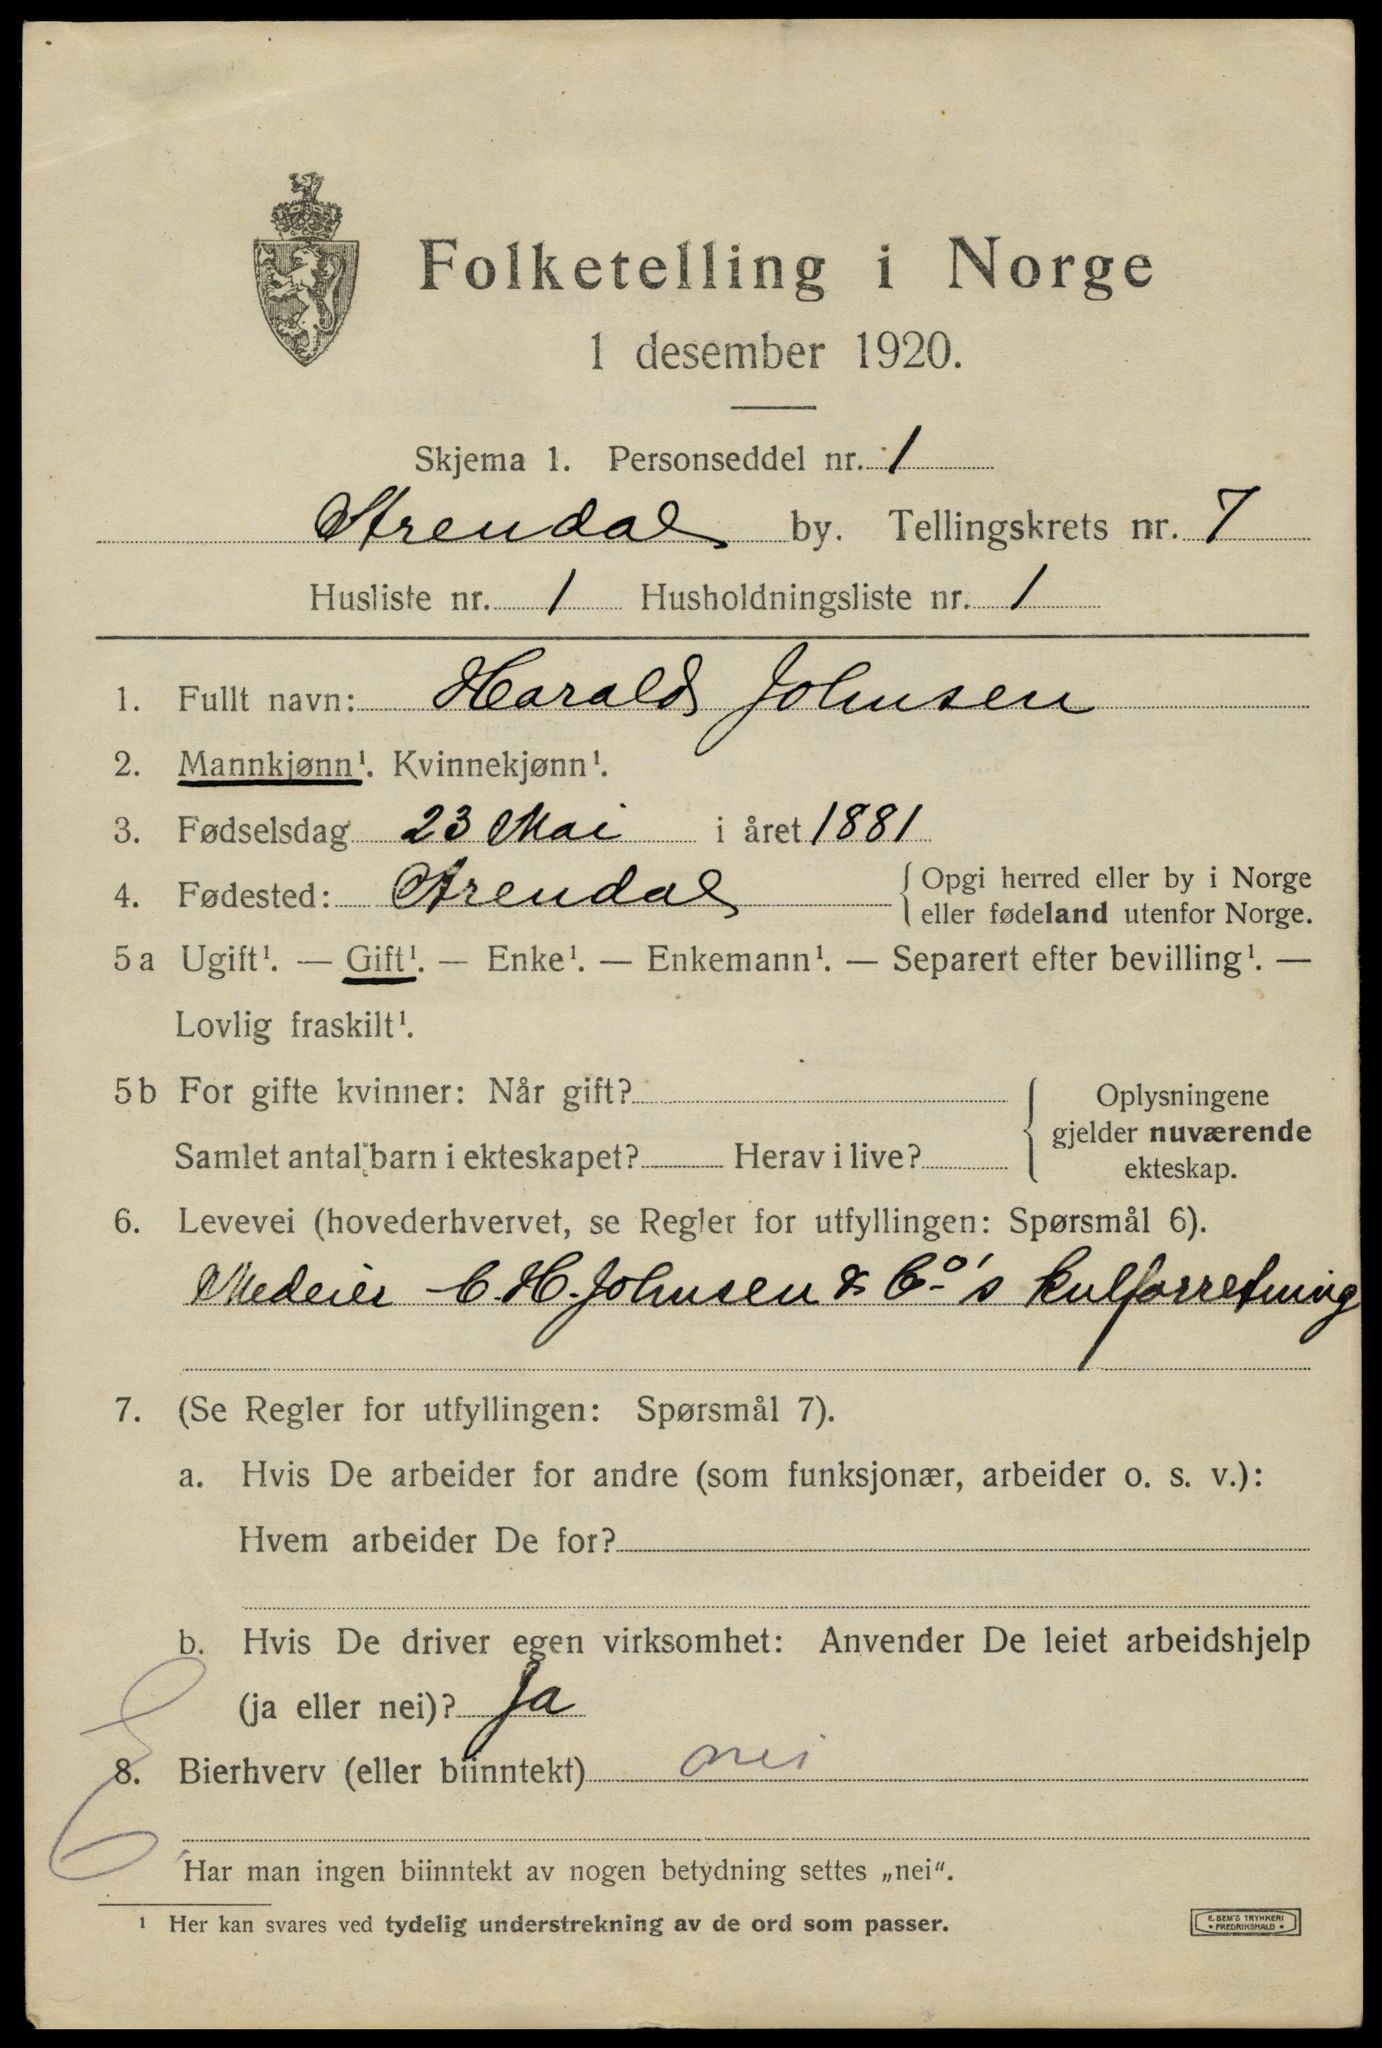 Folketelling i Norge
1 desember 1920.
Skjema 1. Personseddel nr. 1
Arendal by. Tellingskrets nr. 7
Husliste nr. 1 Husholdningsliste nr. 1
1. Fullt navn: Harald Johnsen
2. Mannkjønn¹. Kvinnekjønn¹.
3. Fødselsdag 23 Mai i året 1881
4. Fødested: Arendal
Opgi herred eller by i Norge
eller fødeland utenfor Norge.
5a Ugift¹. — Gift¹. — Enke¹. — Enkemann¹. — Separert efter bevilling¹. —
Lovlig fraskilt¹.
5b For gifte kvinner: Når gift?
Samlet antal barn i ekteskapet? Herav i live?
Oplysningene
gjelder nuværende
ekteskap.
6. Levevei (hovederhvervet, se Regler for utfyllingen: Spørsmål 6).
Medeier C. H. Johnsen & Co's kulforretning
7. (Se Regler for utfyllingen: Spørsmål 7).
a. Hvis De arbeider for andre (som funksjonær, arbeider o. s. v.):
Hvem arbeider De for?
b. Hvis De driver egen virksomhet: Anvender De leiet arbeidshjelp
(ja eller nei)? Ja
8. Bierhverv (eller biinntekt) nei
Har man ingen biinntekt av nogen betydning settes „nei“.
¹ Her kan svares ved tydelig understrekning av de ord som passer.
E. SEM'S TRYKKERI
FREDRIKSHALD